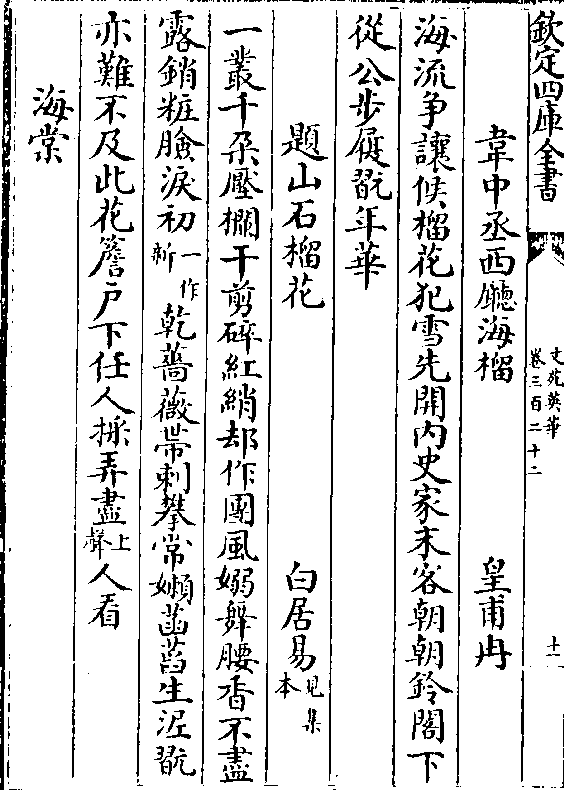 欽定四庫全書
文苑英華
卷三百二十二
十一
韋中丞西廳海榴 皇甫冉
海流争讓候榴花犯雪先開内史家末客朝朝鈴閣下
從公步屧翫年華
題山石榴花 白居易見集本
一叢千朶壓欄干剪碎紅綃却作團風嫋舞腰香不盡
露銷粧臉淚初一作新乾薔薇帶刺攀常嬾菡萏生泥翫
亦難不及此花簷户下任人採弄盡上聲人看
海棠